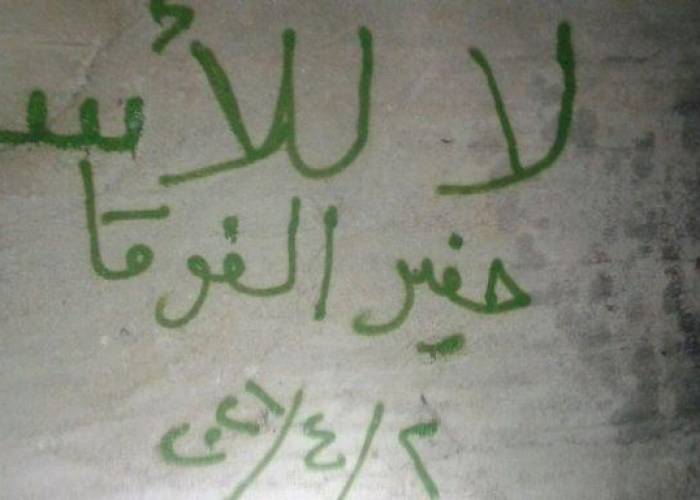 لا للأس
حفير الفوقا
٢/٤/٢٠٢١